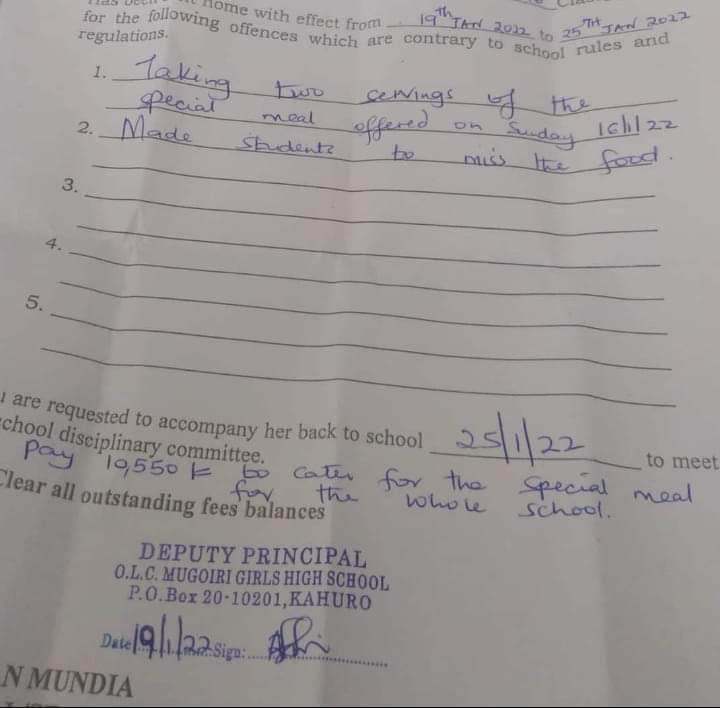 home with effect from 19th JAN 2022 to 25TH JAN 2022
for the following offences which are contrary to school rules and
regulations.
1. Taking two servings of the
special meal offered on Sunday 16/1/22
2. Made students to miss the food.
3.
4.
5.
are requested to accompany her back to school 25/1/22 to meet
school disciplinary committee.
Pay 19,550 k to cater for the special meal
for the whole school.
Clear all outstanding fees balances
DEPUTY PRINCIPAL
O.L.C. MUGOIRI GIRLS HIGH SCHOOL
P.O.Box 20-10201,KAHURO
Date 19/1/22 Sign:
N MUNDIA